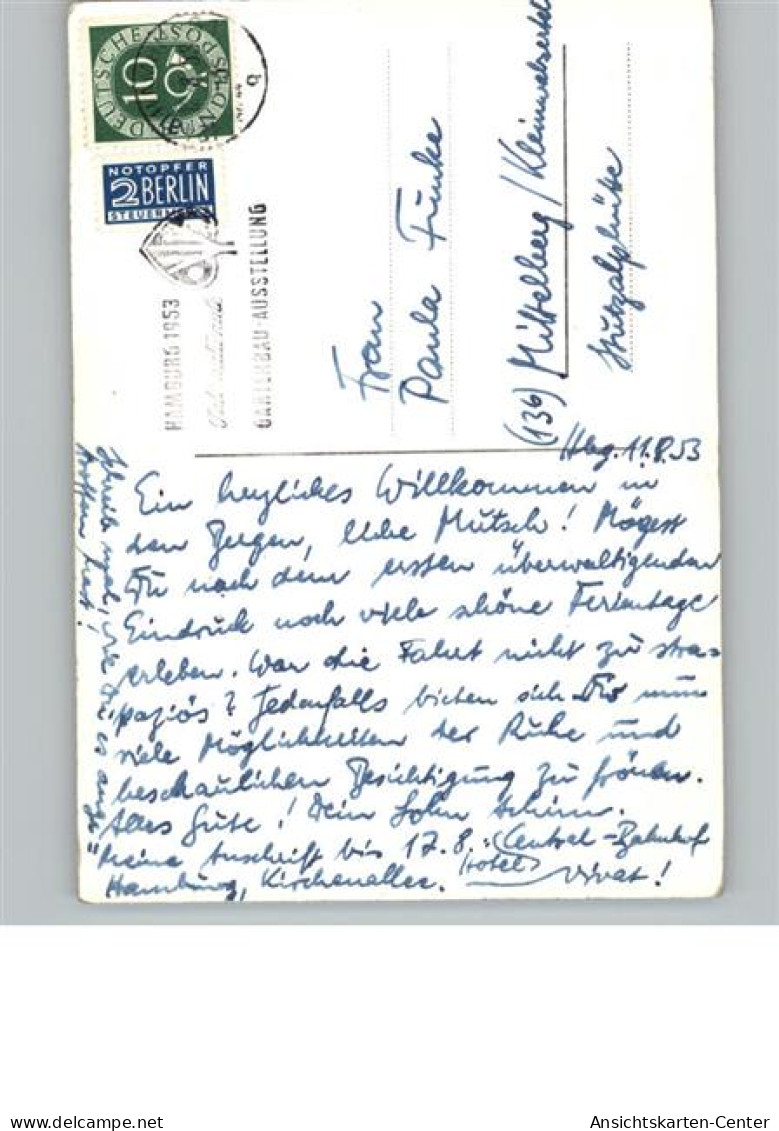 DEUTSCHE BUNDESPOST
10
NOTOPFER
2 BERLIN
STEUERMARKE
HAMBURG 1953
Internationale
GARTENBAU-AUSSTELLUNG
Frau
Paula Funke
(136) Mittelberg / Kleinwalsertal
Hbg. 11.8.53
Ein herzliches Willkommen in
den Bergen, liebe Mutsch! Mögest
Du nach dem ersten überwältigenden
Eindruck noch viele schöne Ferientage
erleben. War die Fahrt nicht zu stra=
paziös? Jedenfalls bieten sich Dir nun
viele Möglichkeiten der Ruhe und
beschaulichen Besichtigung zu frönen.
Alles Gute! Dein Sohn
Meine Anschrift bis 17.8.: Central-Bahnhof
Hotel
Hamburg, Kirchenallee. Vivat!
Schreib mal, wie Du es
getroffen hast!
Ansichtskarten-Center